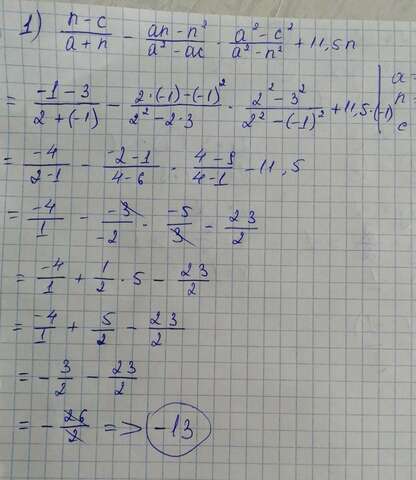 1) (n-c)/(a+n) - (an-n²)/(a²-ac) · (a²-c²)/(a²-n²) + 11,5n
a=
= (-1-3)/(2+(-1)) - (2·(-1)-(-1)²)/(2²-2·3) · (2²-3²)/(2²-(-1)²) + 11,5·(-1)
n=
c
= (-4)/(2-1) - (-2-1)/(4-6) · (4-9)/(4-1) - 11,5
= (-4)/1 - (-3)/(-2) · (-5)/3 - 23/2
= (-4)/1 + 1/2 · 5 - 23/2
= (-4)/1 + 5/2 - 23/2
= - 3/2 - 23/2
= - 26/2 => -13